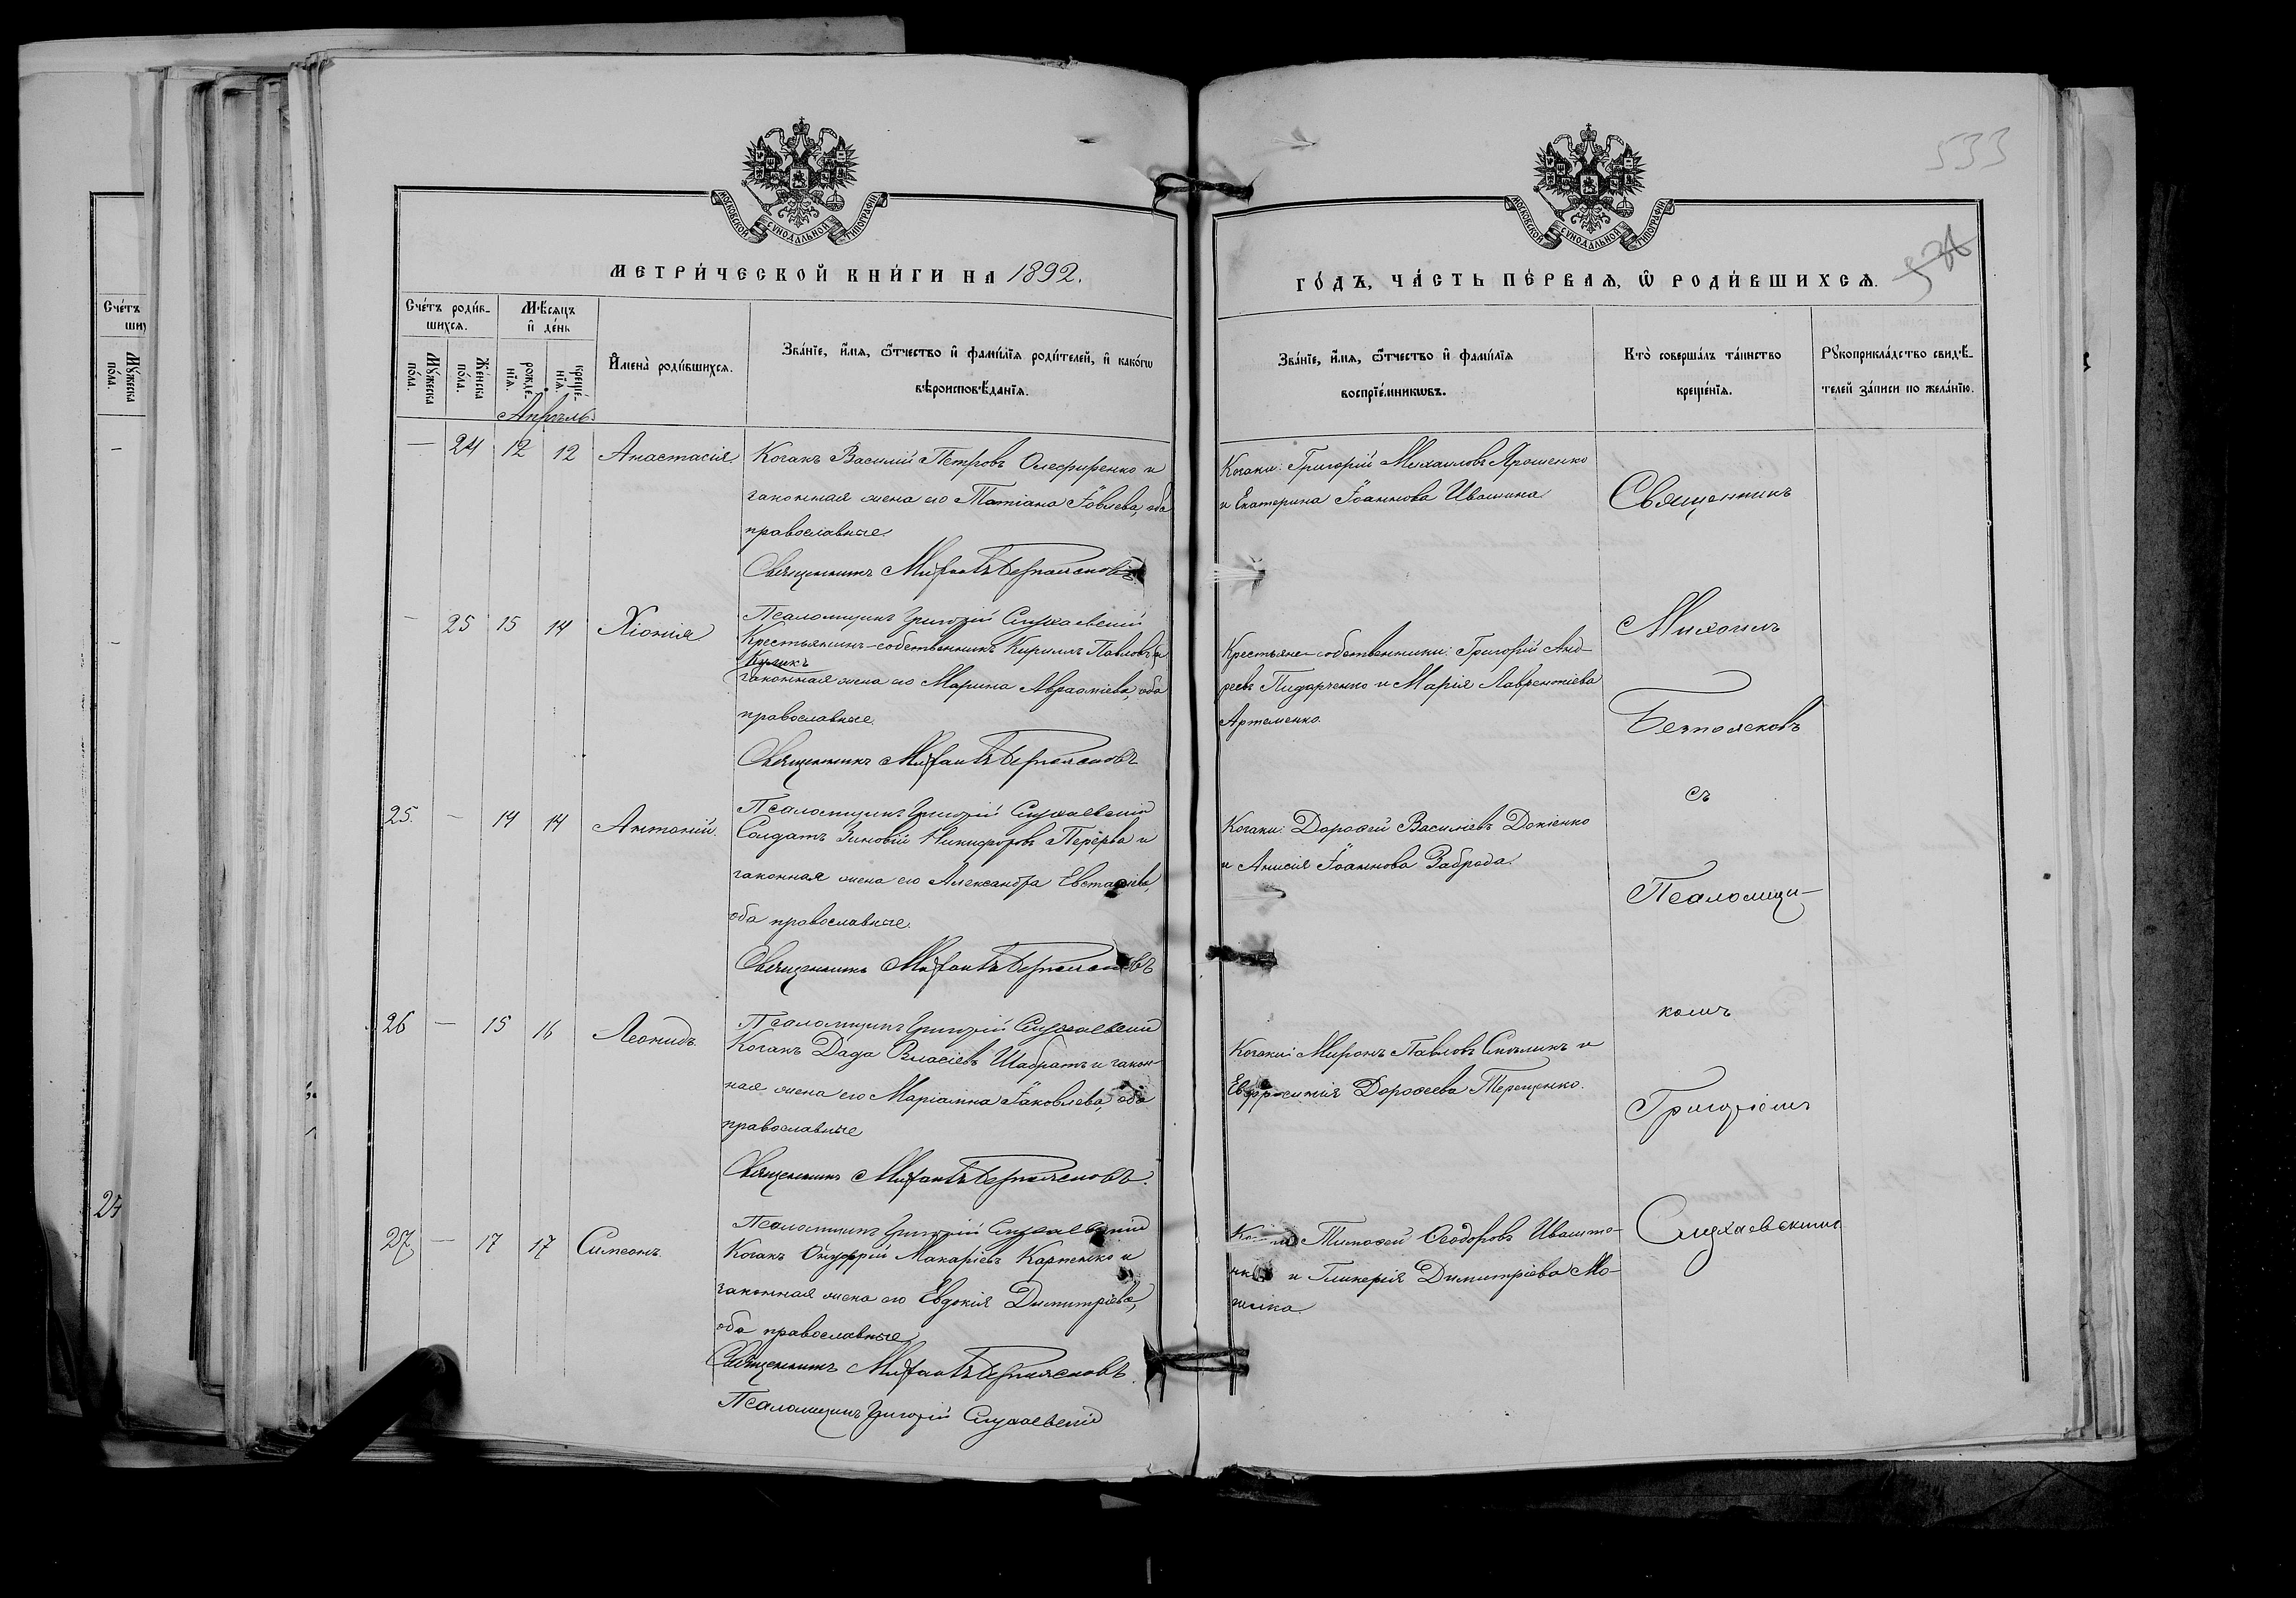 533
МОСКОВСКОЙ СѴНОДАЛЬНОЙ ТИПОГРАФІИ
МОСКОВСКОЙ СѴНОДАЛЬНОЙ ТИПОГРАФІИ
МЕТРИ́ЧЕСКОЙ КНИ́ГИ НА 1892.
ГО́ДЪ, ЧА́СТЬ ПЕ́РВАЯ, Ѡ҆ РОДИ́ВШИХСЯ.
Сче́тъ роди́в-
шихсѧ.
Мꙋ́жеска
по́ла.
Же́нска
по́ла.
Мѣ́сѧцъ
и҆ де́нь
рожде́-
нїѧ.
креще́-
нїѧ.
И҆мена̀ роди́вшихсѧ.
Зва́нїе, и҆́мѧ, ѻ҆́тчество и҆ фами́лїѧ роди́телей, и҆ како́гѡ
вѣроисповѣ́данїѧ.
Зва́нїе, и҆́мѧ, ѻ҆́тчество и҆ фами́лїѧ
воспрїе́мникѡвъ.
Кто̀ соверша́лъ та́инство
креще́нїѧ.
Рꙋкоприкла́дство свидѣ́-
телей за́писи по жела́нїю.
Апрѣль
— 24 12 12 Анастасія.
Козакъ Василій Петровъ Олефиренко и
законная жена его Татіана Іовлева, оба
православные.
Священникъ Михаилъ Безпоясковъ
Псаломщикъ Григорій Слухаевскій
Козаки: Григорій Михаиловъ Ярошенко
и Екатерина Іоаннова Ивашина.
— 25 15 14 Хіонія
Крестьянинъ-собственникъ Кириллъ Павловъ и
Куликъ
законная жена его Марина Авраамieва, оба
православные.
Священникъ Михаилъ Безпоясковъ
Псаломщикъ Григорій Слухаевскій
Крестьяне-собственники: Григорій Анд-
реевъ Пидарченко и Марія Лаврентіева
Артеменко.
25. — 14 14 Антоній.
Солдатъ Зиновій Никифоровъ Перерва и
законная жена его Александра Евстафіева,
оба православные.
Священникъ Михаилъ Безпоясковъ
Псаломщикъ Григорій Слухаевскій
Козаки: Дорофей Василіевъ Докіенко
и Анисія Іоаннова Заброда.
26 — 15 16 Леонидъ.
Козакъ Дада Власіевъ Шабратъ и закон-
ная жена его Маріамна Іаковлева, оба
православные
Священникъ Михаилъ Безпоясковъ.
Псаломщикъ Григорій Слухаевскій
Козаки: Миронъ Павловъ и
Евфросинія Дорофеева Терещенко.
27 — 17 17 Симеонъ.
Козакъ Онуфрій Макаріевъ Карпенко и
законная жена его Евдокія Димитріева,
оба православные
Священникъ Михаилъ Безпоясковъ.
Псаломщикъ Григорій Слухаевскій
Тимофей Ѳеодоровъ Иваште-
и Гликерія Димитріева Мо-
Священникъ
Михаилъ
Безпоясковъ
съ
Псаломщи-
комъ
Григоріемъ
Слухаевскимъ
Сче́тъ
Мꙋ́жеска
по́ла.
24